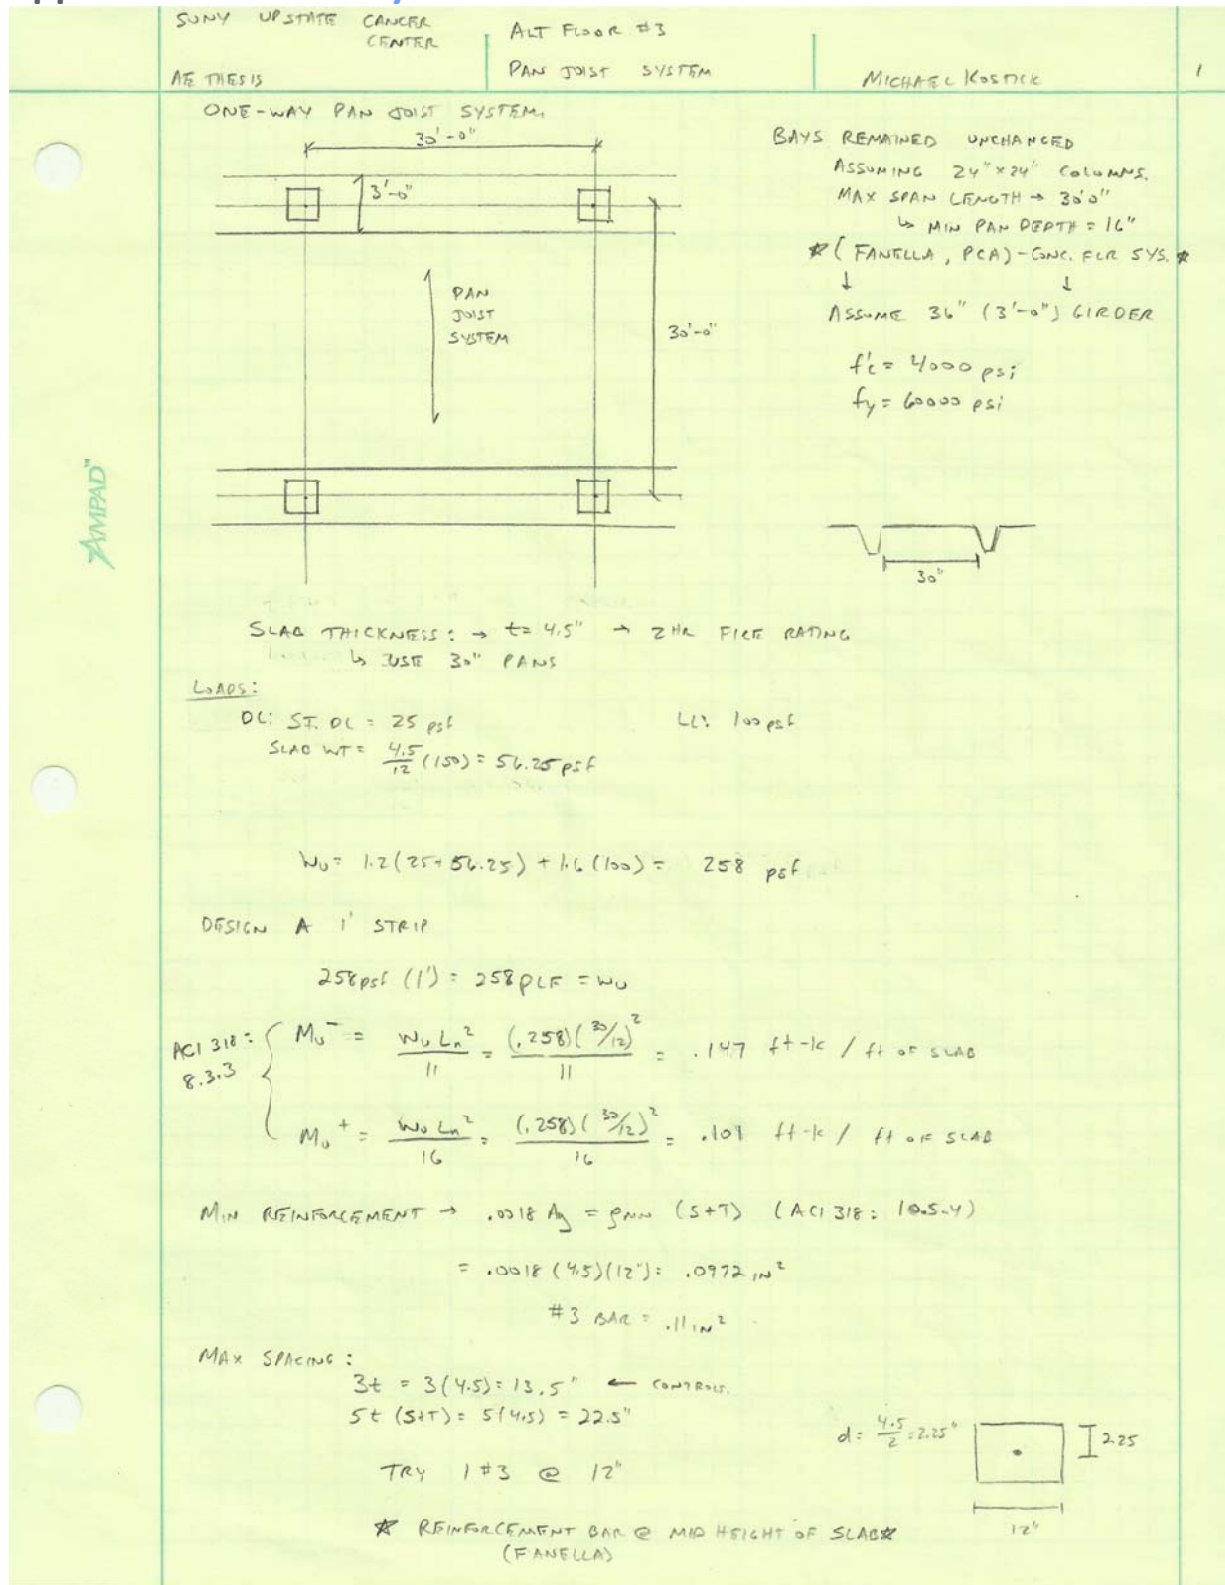 SUNY UPSTATE CANCER CENTER
ALT FLOOR #3
AE THESIS
PAN JOIST SYSTEM
MICHAEL KOSTICK
1
ONE-WAY PAN JOIST SYSTEM
30'-0"
3'-0"
PAN
JOIST
SYSTEM
30'-0"
BAYS REMAINED UNCHANGED
ASSUMING 24"x24" COLUMNS.
MAX SPAN LENGTH → 30'0"
↳ MIN PAN DEPTH = 16"
* (FANELLA, PCA) - CONC. FLR SYS. *
↓ ↓
ASSUME 36" (3'-0") GIRDER
f'c = 4000 psi
fy = 60000 psi
30"
AMPAD™
SLAB THICKNESS: → t= 4.5" → 2 HR FIRE RATING
↳ USE 30" PANS
LOADS:
DL: ST. DL = 25 psf
LL: 100 psf
SLAB WT = 4.5/12 (150) = 56.25 psf
Wu = 1.2(25+56.25) + 1.6(100) = 258 psf
DESIGN A 1' STRIP
258psf (1') = 258 PLF = wu
ACI 318:
8.3.3
Mu⁻ = WuLn²/11 = (.258)(30/12)²/11 = .147 ft-k / ft OF SLAB
Mu⁺ = WuLn²/16 = (.258)(30/12)²/16 = .101 ft-k / ft OF SLAB
MIN REINFORCEMENT → .0018 Ag = ρMIN (S+T) (ACI 318: 10.5.4)
= .0018 (4.5)(12") = .0972 IN²
#3 BAR = .11 IN²
MAX SPACING:
3t = 3(4.5) = 13.5" ← CONTROLS.
5t (S+T) = 5(4.5) = 22.5"
TRY 1 #3 @ 12"
d = 4.5/2 = 2.25"
2.25
12"
* REINFORCEMENT BAR @ MID HEIGHT OF SLAB *
(FANELLA)